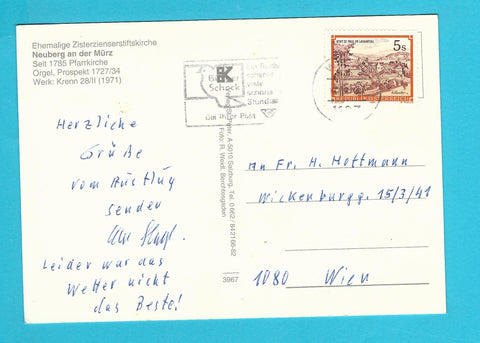 Ehemalige Zisterzienserstiftskirche
Neuberg an der Mürz
Seit 1785 Pfarrkirche
Orgel, Prospekt 1727/34
Werk: Krenn 28/II (1971)
Herzliche
Grüße
vom Ausflug
senden
Leider war das
Wetter nicht
das Beste!
A-5010 Salzburg, Tel. 0 662 / 842166-82
Foto: R. Weidl, Berchtesgaden
3967
Scheck
viele
schöne
Stunden
Bei Ihrer Post
STIFT ST. PAUL IM LAVANTTAL
5s
REPUBLIK ÖSTERREICH
An Fr. H. Hottmann
Wickenburgg. 15/3/41
1080 Wien